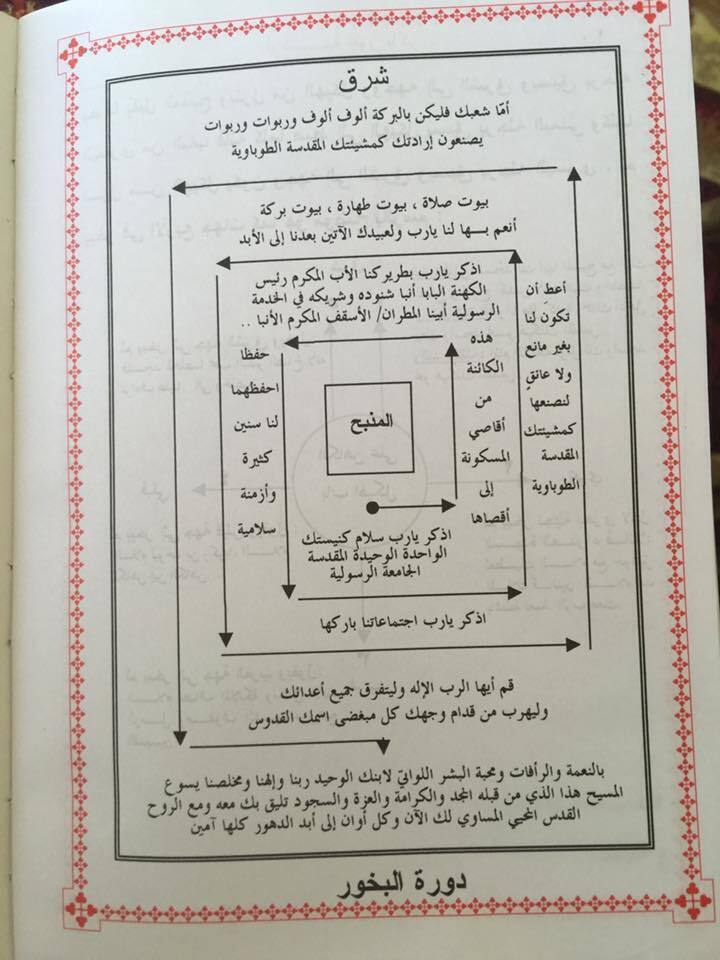 شرق
أمّا شعبك فليكن بالبركة ألوف ألوف وربوات وربوات
يصنعون إرادتك كمشيئتك المقدسة الطوباوية
بيوت صلاة ، بيوت طهارة ، بيوت بركة
أنعم بــها لنا يارب ولعبيدك الآتين بعدنا إلى الأبد
اذكر يارب بطريركنا الأب المكرم رئيس
الكهنة البابا أنبا شنوده وشريكه في الخدمة
الرسولية أبينا المطران/ الأسقف المكرم الأنبا ..
أعط أن
تكون لنا
بغير مانع
ولا عائقٍ
لنصنعها
كمشيئتك
المقدسة
الطوباوية
هذه
الكائنة
من
أقاصي
المسكونة
إلى
أقصاها
حفظا
احفظهما
لنا سنين
كثيرة
وأزمنة
سلامية
المذبح
اذكر يارب سلام كنيستك
الواحدة الوحيدة المقدسة
الجامعة الرسولية
اذكر يارب اجتماعاتنا باركها
قم أيها الرب الإله وليتفرق جميع أعدائك
وليهرب من قدام وجهك كل مبغضى اسمك القدوس
بالنعمة والرأفات ومحبة البشر اللواتي لابنك الوحيد ربنا وإلهنا ومخلصنا يسوع
المسيح هذا الذي من قبله المجد والكرامة والعزة والسجود تليق بك معه ومع الروح
القدس المحيي المساوي لك الآن وكل أوان إلى أبد الدهور كلها آمين
دورة البخور